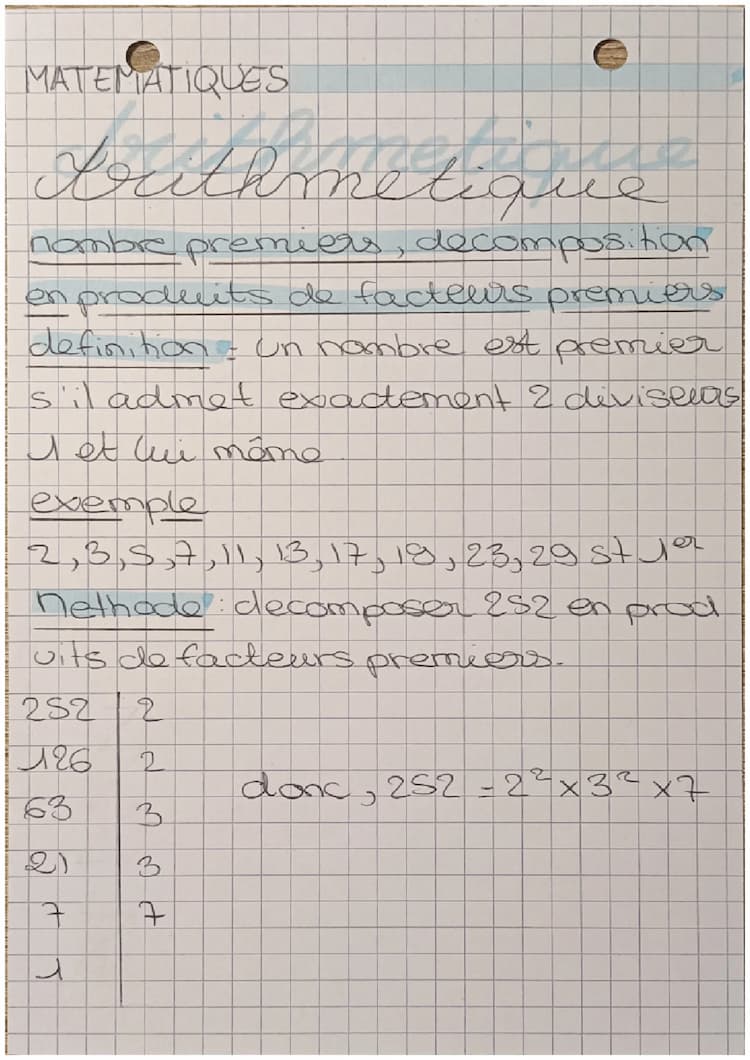 MATEMATIQUES
Arithmetique
nombre premiers, decomposition
en produits de facteurs premiers
definition : un nombre est premier
s'il admet exactement 2 diviseurs
1 et lui même
exemple
2, 3, 5, 7, 11, 13, 17, 19, 23, 29 st 1er
Methode : decomposer 252 en prod
uits de facteurs premiers.
252 | 2
126 | 2
donc, 252 = 2² × 3² × 7
63 | 3
21 | 3
7 | 7
1